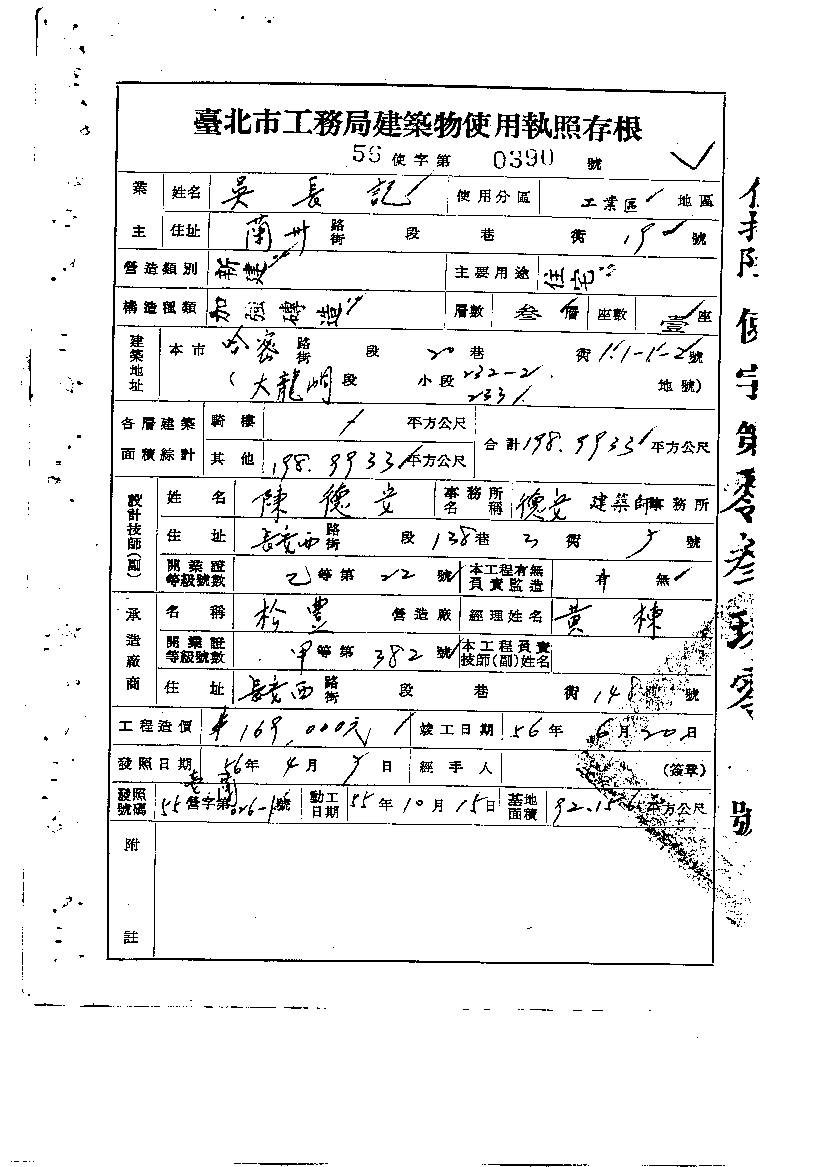 臺北市工務局建築物使用執照存根
56使字第 0390 號
業主 姓名 吳長記 使用分區 工業區 地區
住址 蘭州 路街 段 巷 街 19 號
營造類別 新建 主要用途 住宅
構造種類 加強磚造 層數 叁層 座數 壹座
建築地址 本市 哈密 路街 段 20巷 街 號
(大龍峒段 小段 232-2 233 地號)
各層建築面積綜計 騎樓 平方公尺 合計 198.9933 平方公尺
其他 198.9933 平方公尺
設計技師(副) 姓名 陳德安 事務所名稱 德安 建築師事務所
住址 長安西 路街 段 138巷 3 街 5 號
開業證等級號數 乙等第 22 號 本工程有無負責監造 有 無
承造廠商 名稱 松豐 營造廠 經理姓名 黃棟
開業證等級號數 甲等第 382 號 本工程負責技師(副)姓名
住址 長安西 路街 段 巷 街 148 號
工程造價 169,000元 竣工日期 56年 6月 20日
發照日期 56年 4月 5日 經手人 (簽章)
發照號碼 55營字第 號 動工日期 55年 10月 15日 基地面積 92.156 平方公尺
附註
使字第零叁玖零號